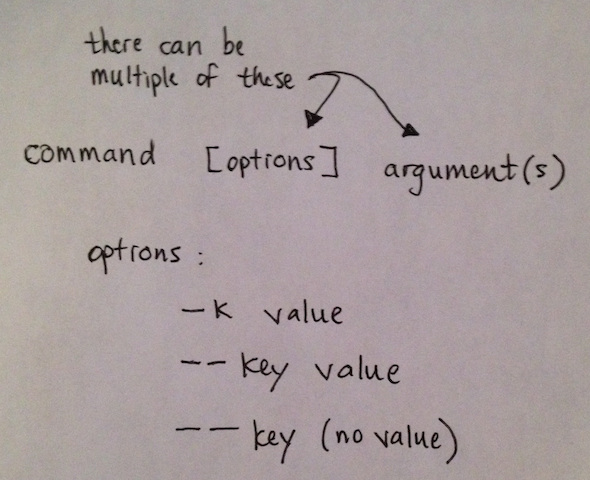 there can be
multiple of these
command [options] argument(s)
options:
-k value
-- key value
-- key (no value)